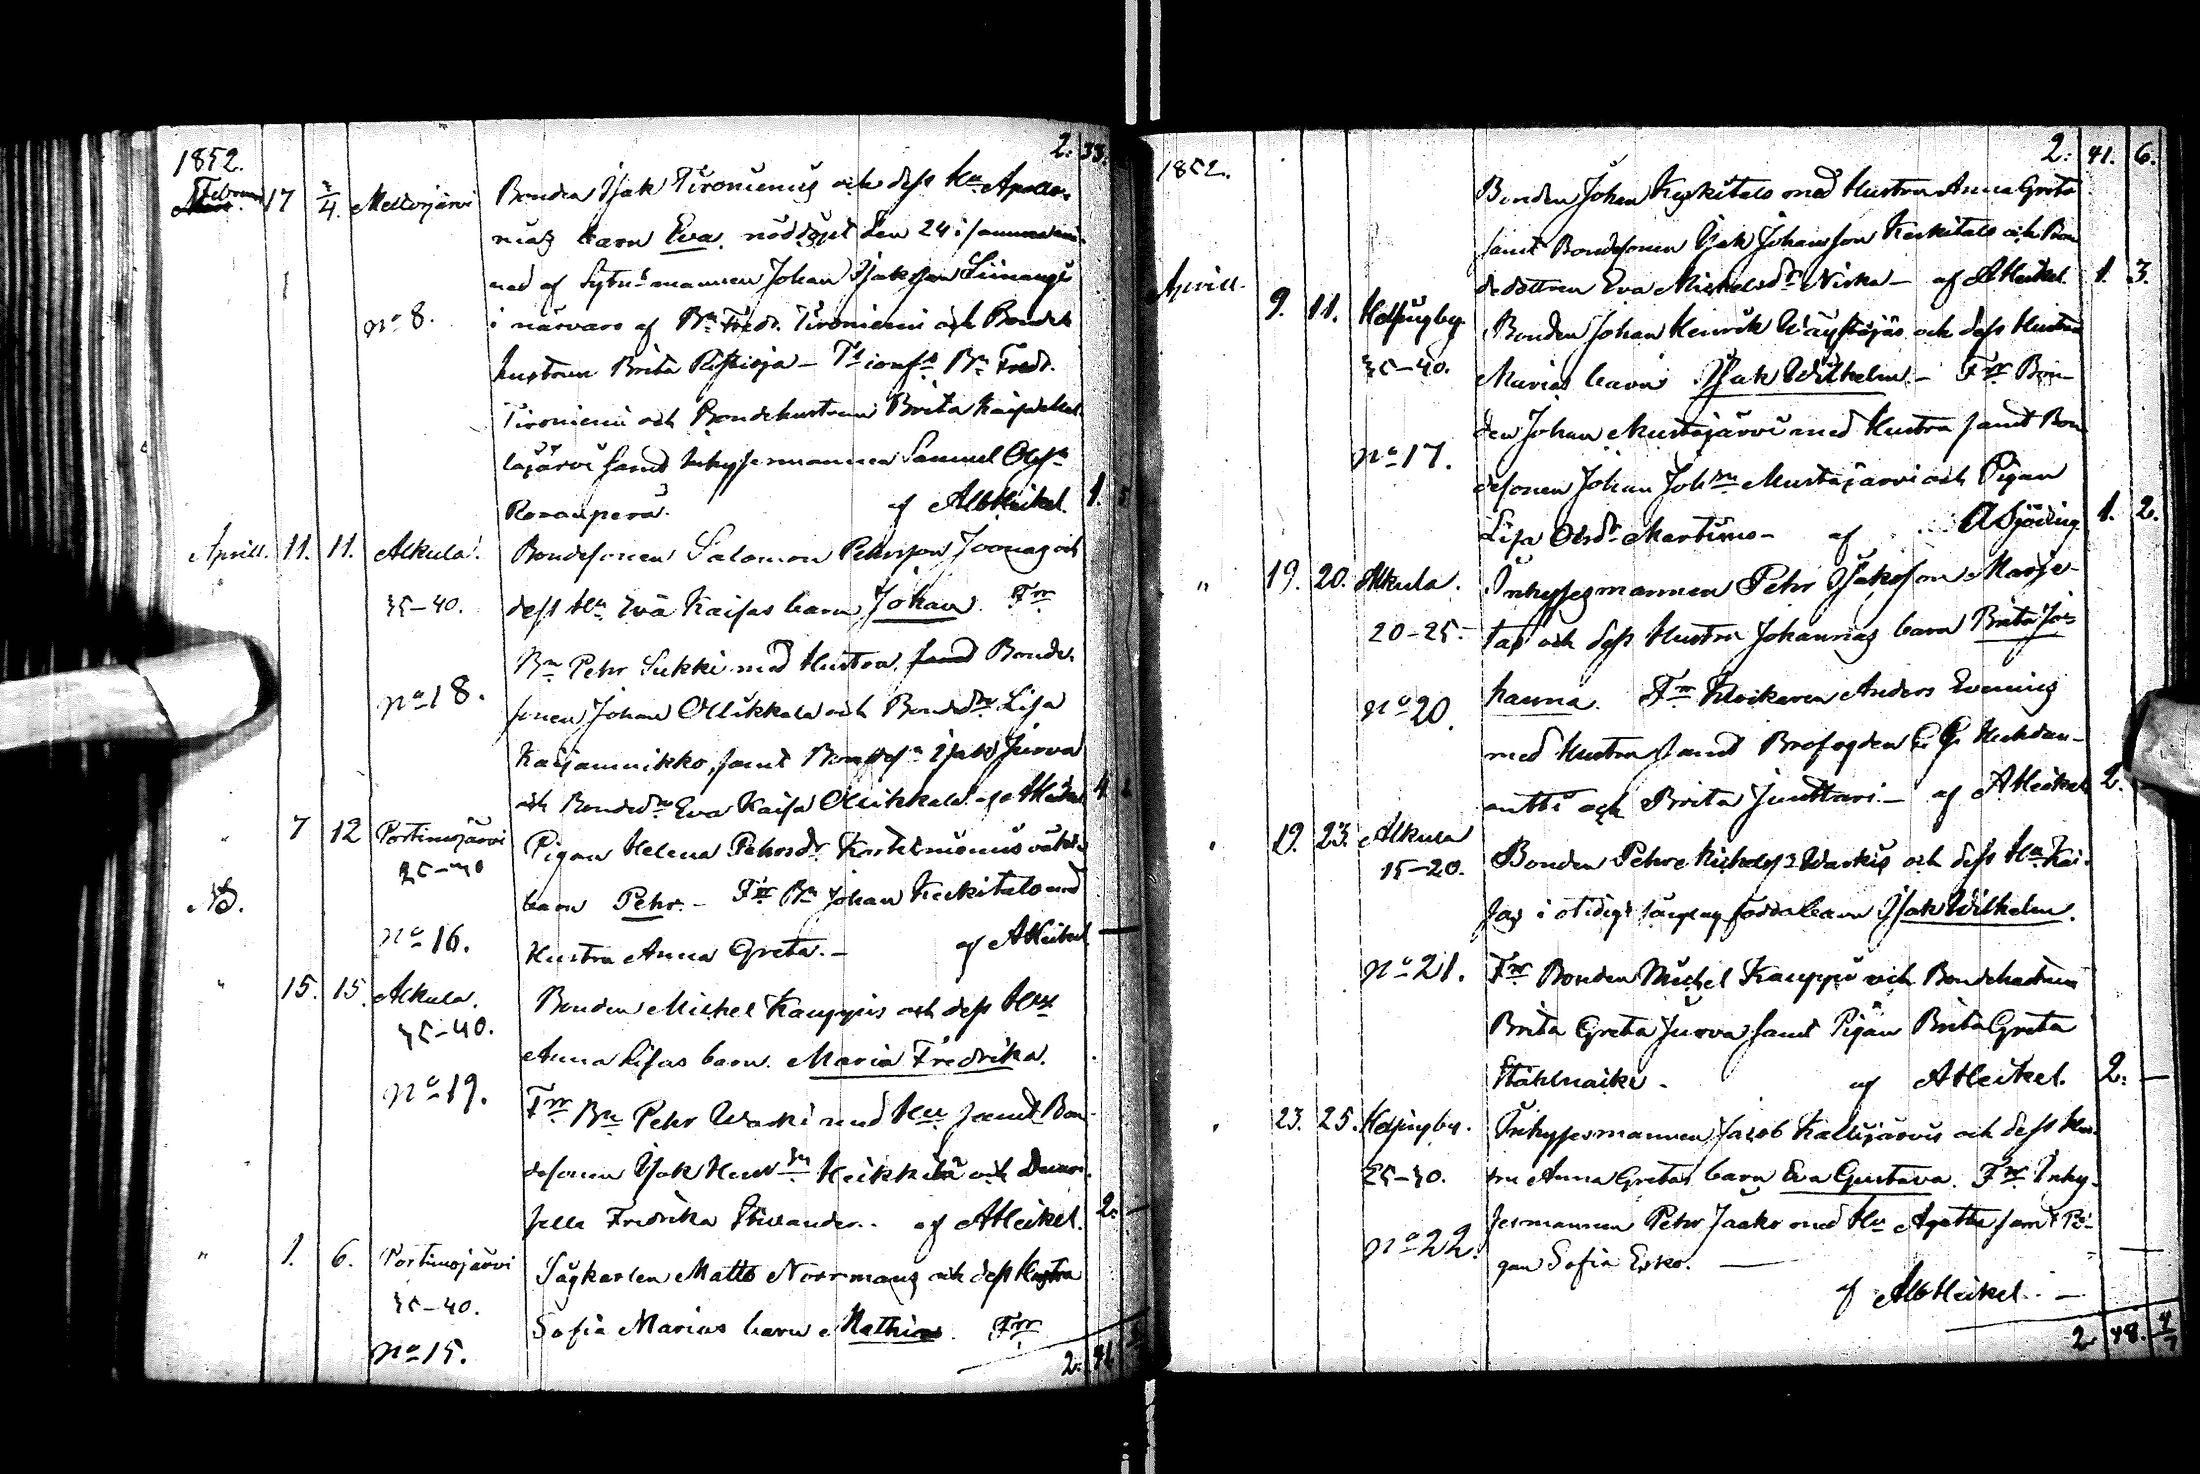 1852.
2. 33.
Februari 17 2/4. Mellojärvi Bonden Isak Tironiemis och dess Hu Apollo-
nias barn Eva nöddöpt den 24 i samma må-
nad af Johan Isaksson Liinangi
No 8. i närvaro af Bn Fredr. Tironiemi och Bonde
hustrun Brita Rissioja — Ts Bn Fredr.
Tironiemi och Bondehustrun Brita Kaisa Mel-
lajärvi samt Inhysesmannen Samuel Olofsn
Rovanperä. af Alb Heikel. 1.
Aprill. 11. 11. Alkula. Bondesonen Salomon Pehrsson Joonas och
35–40. dess Hu Eva Kaisas barn Johan. Frr
Bn Pehr Sukki med Hustru, samt Bonde-
No 18. sonen Johan Ollikkala och Bondedtr Lisa
Kaijamnikko, samt Bondes Isak Jurva
och Bondedtr Eva Kaisa Ollikkala. af A Heikel 4.
" 7 12 Portimojärvi Pigan Helena Pehrsdr Kortetniemis oäkta
25–30
NB. barn Pehr. — Frr Bn Johan Keskitalo med
No 16. Hustru Anna Greta. — af A Heikel —
" 15. 15. Alkula. Bonden Michel Kauppis och dess Hu
35–40. Anna Lisas barn. Maria Fredrika.
No 19. Frr Bn Pehr Warki med Hu samt Bon-
desonen Isak Henrsn Heikkilä och Demoi-
selle Fredrika . af A Heikel. 2. —
" 1. 6. Portimojärvi Sågkarlen Matts Norrmans och dess Hustru
35–40. Sofia Marias barn Mathias. Frr
No 15.
2. 41.
1852.
2. 41. 6.
Bonden Johan Keskitalo med Hustru Anna Greta
samt Bondesonen Isak Johansson Keskitalo och Bon-
dedottren Eva Michelsdr Niska — af A Heikel. 1. 3.
Aprill. 9. 11. Helsingby. Bonden Johan Henrik Wäystöjäs och dess Hustru
35–40. Marias barn Isak Wilhelm. — Frr Bon-
den Johan Mustajärvi med Hustru samt Bon-
No 17. desonen Johan Johsn Mustajärvi och Pigan
Lisa Olsdr Martimo — af A Sjöding. 1. 2.
" 19. 20. Alkula. Inhysesmannen Pehr Isaksson Marje-
20–25. tas och dess Hustru Johannas barn Brita Jo-
No 20. hanna. Frr Klockaren Anders Evening
med Hustru samt Brofogden Heikdan-
antti och Brita Junttari — af A Heikel 2. —
" 19. 23. Alkula Bonden Pehr Michelss Warkis och dess Hu Kai-
15–20. sas i otidigt sängslag födda barn Isak Wilhelm.
No 21. Frr Bonden Michel Kauppi och Bondehustrun
Brita Greta Jurva samt Pigan Brita Greta
Ståhlnacke — af A Heikel. 2. —
" 23. 25. Helsingby. Inhysesmannen Jacob Kallijärvis och dess Hus-
25–30. tru Anna Gretas barn Eva Gustava. Frr Inhy-
No 22. sesmannen Pehr Jaako med Hu Agatha samt Pi-
gan Sofia Esko. — " —
af Alb Heikel. —
2. 48. 4/7